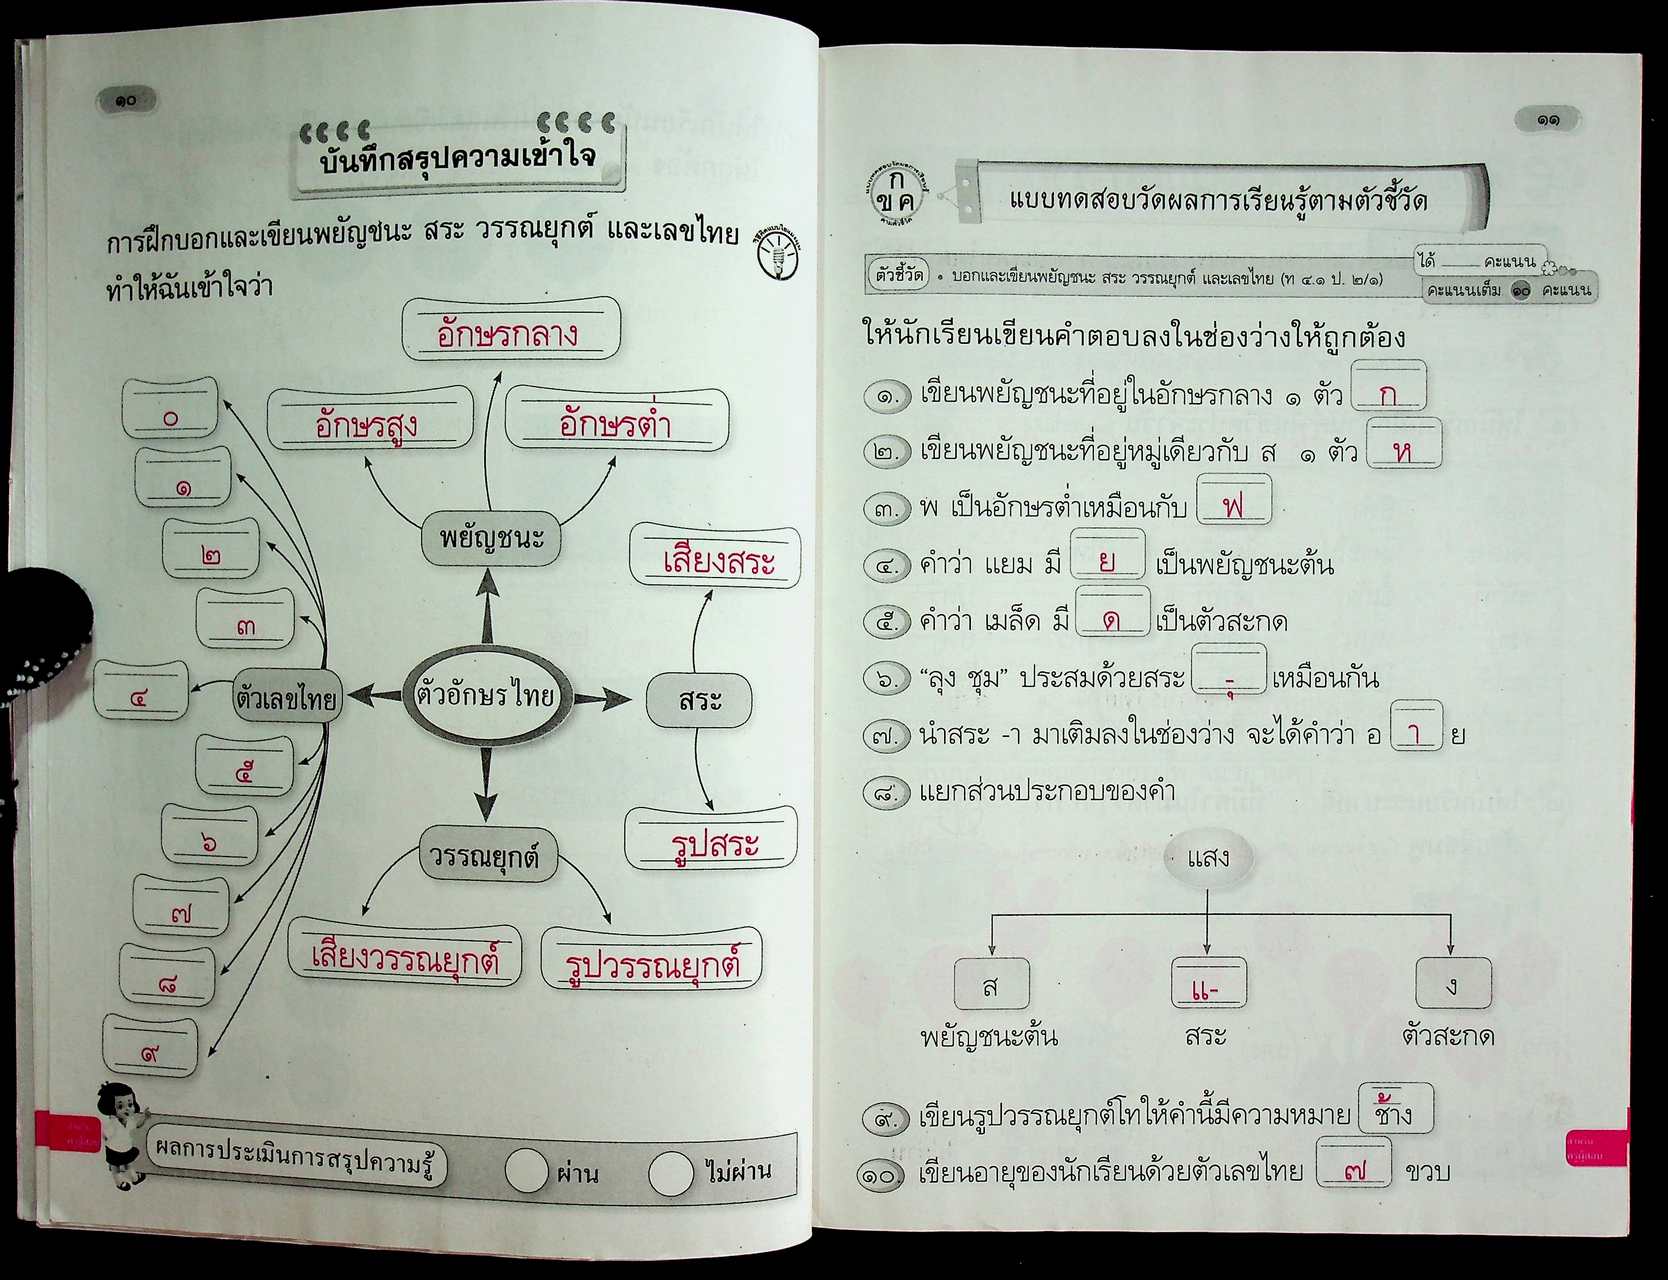 ๑๐
บันทึกสรุปความเข้าใจ
การฝึกบอกและเขียนพยัญชนะ สระ วรรณยุกต์ และเลขไทย
ทำให้ฉันเข้าใจว่า
อักษรกลาง
อักษรสูง
อักษรต่ำ
พยัญชนะ
๐
๑
๒
๓
๔
๕
๖
๗
๘
๙
ตัวเลขไทย
ตัวอักษรไทย
เสียงสระ
สระ
รูปสระ
วรรณยุกต์
เสียงวรรณยุกต์
รูปวรรณยุกต์
ผลการประเมินการสรุปความรู้ ผ่าน ไม่ผ่าน
๑๑
ก
ข ค
แบบทดสอบวัดผลการเรียนรู้ตามตัวชี้วัด
ตัวชี้วัด • บอกและเขียนพยัญชนะ สระ วรรณยุกต์ และเลขไทย (ท ๔.๑ ป. ๒/๑)
ได้ ____ คะแนน
คะแนนเต็ม ๑๐ คะแนน
ให้นักเรียนเขียนคำตอบลงในช่องว่างให้ถูกต้อง
๑. เขียนพยัญชนะที่อยู่ในอักษรกลาง ๑ ตัว ก
๒. เขียนพยัญชนะที่อยู่หมู่เดียวกับ ส ๑ ตัว ห
๓. พ เป็นอักษรต่ำเหมือนกับ ฟ
๔. คำว่า แยม มี ย เป็นพยัญชนะต้น
๕. คำว่า เมล็ด มี ด เป็นตัวสะกด
๖. “ลุง ชุม” ประสมด้วยสระ -ุ เหมือนกัน
๗. นำสระ -า มาเติมลงในช่องว่าง จะได้คำว่า อ า ย
๘. แยกส่วนประกอบของคำ
แสง
ส แ- ง
พยัญชนะต้น สระ ตัวสะกด
๙. เขียนรูปวรรณยุกต์โทให้คำนี้มีความหมาย ช้าง
๑๐. เขียนอายุของนักเรียนด้วยตัวเลขไทย ๗ ขวบ